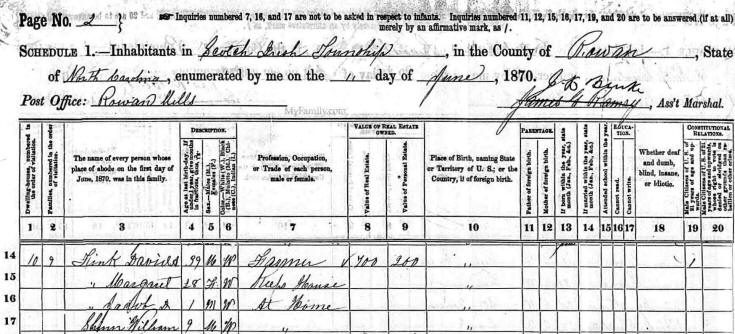 Page No. 2
Inquiries numbered 7, 16, and 17 are not to be asked in respect to infants. Inquiries numbered 11, 12, 15, 16, 17, 19, and 20 are to be answered (if at all) merely by an affirmative mark, as /.
SCHEDULE 1.—Inhabitants in Scotch Irish Township, in the County of Rowan, State
of North Carolina, enumerated by me on the 11 day of June, 1870.
Post Office: Rowan Mills
James G Ramsy, Ass't Marshal.
MyFamily.com
Dwelling-houses, numbered in the order of visitation.
Families, numbered in the order of visitation.
The name of every person whose place of abode on the first day of June, 1870, was in this family.
DESCRIPTION.
Profession, Occupation, or Trade of each person, male or female.
VALUE OF REAL ESTATE OWNED.
Value of Real Estate.
Value of Personal Estate.
Place of Birth, naming State or Territory of U. S.; or the Country, if of foreign birth.
PARENTAGE.
Father of foreign birth.
Mother of foreign birth.
If born within the year, state month (Jan. Feb., &c.)
If married within the year, state month (Jan. Feb., &c.)
Attended school within the year.
EDUCATION.
Cannot read.
Cannot write.
Whether deaf and dumb, blind, insane, or idiotic.
CONSTITUTIONAL RELATIONS.
1 2 3 4 5 6 7 8 9 10 11 12 13 14 15 16 17 18 19 20
14 10 9 David 39 M W Farmer 700 200 " 1
15 " Margret 28 F W Keeps House "
16 " D 1 M W At Home "
17 William 9 M W " "